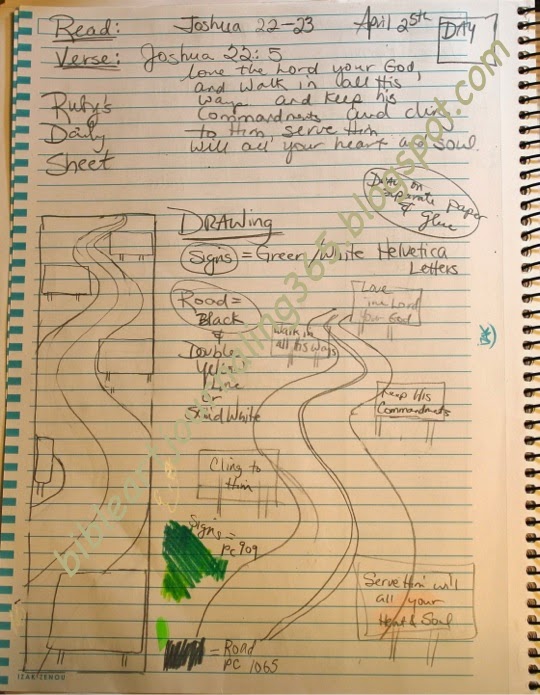 Read: Joshua 22-23 April 25th DAY
Verse: Joshua 22:5
Love the Lord your God,
and walk in all His
ways and keep his
Commandments and cling
to Him, serve Him
will all your heart and soul.
Ruty's
Daily
Sheet
Draw on
separate paper
& glue
DRAWing
Signs = Green/White Helvetica
Letters
Road =
Black
&
Double
Yellow
Line
or
Solid White
Love
the Lord
your God
Walk in
all His ways
Keep His
Commandments
Cling to
Him
Signs =
PC 909
Serve Him will
all your
Heart & Soul
= Road
PC 1065
IZAK ZENOU
bibleartjournaling365.blogspot.com